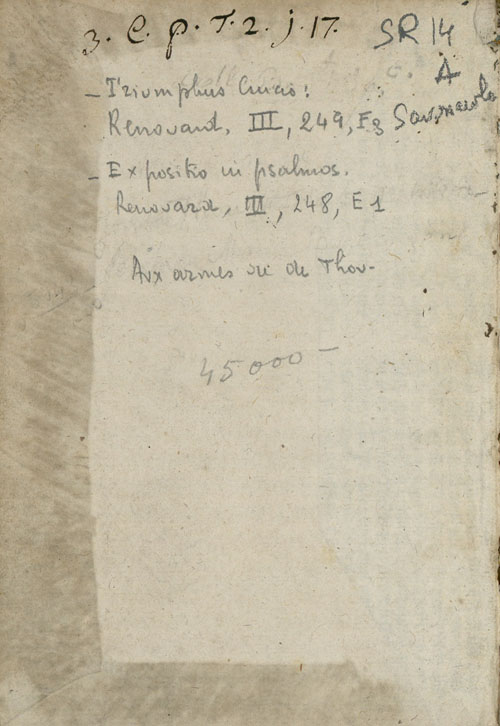 3. C. p. T. 2. j. 17.
SR 14
A
Savonarola
– Triumphus Crucis:
Renouard, III, 249, E3
– Expositio in psalmos.
Renouard, III, 248, E1
Aux armes de de Thou-
45 000 –